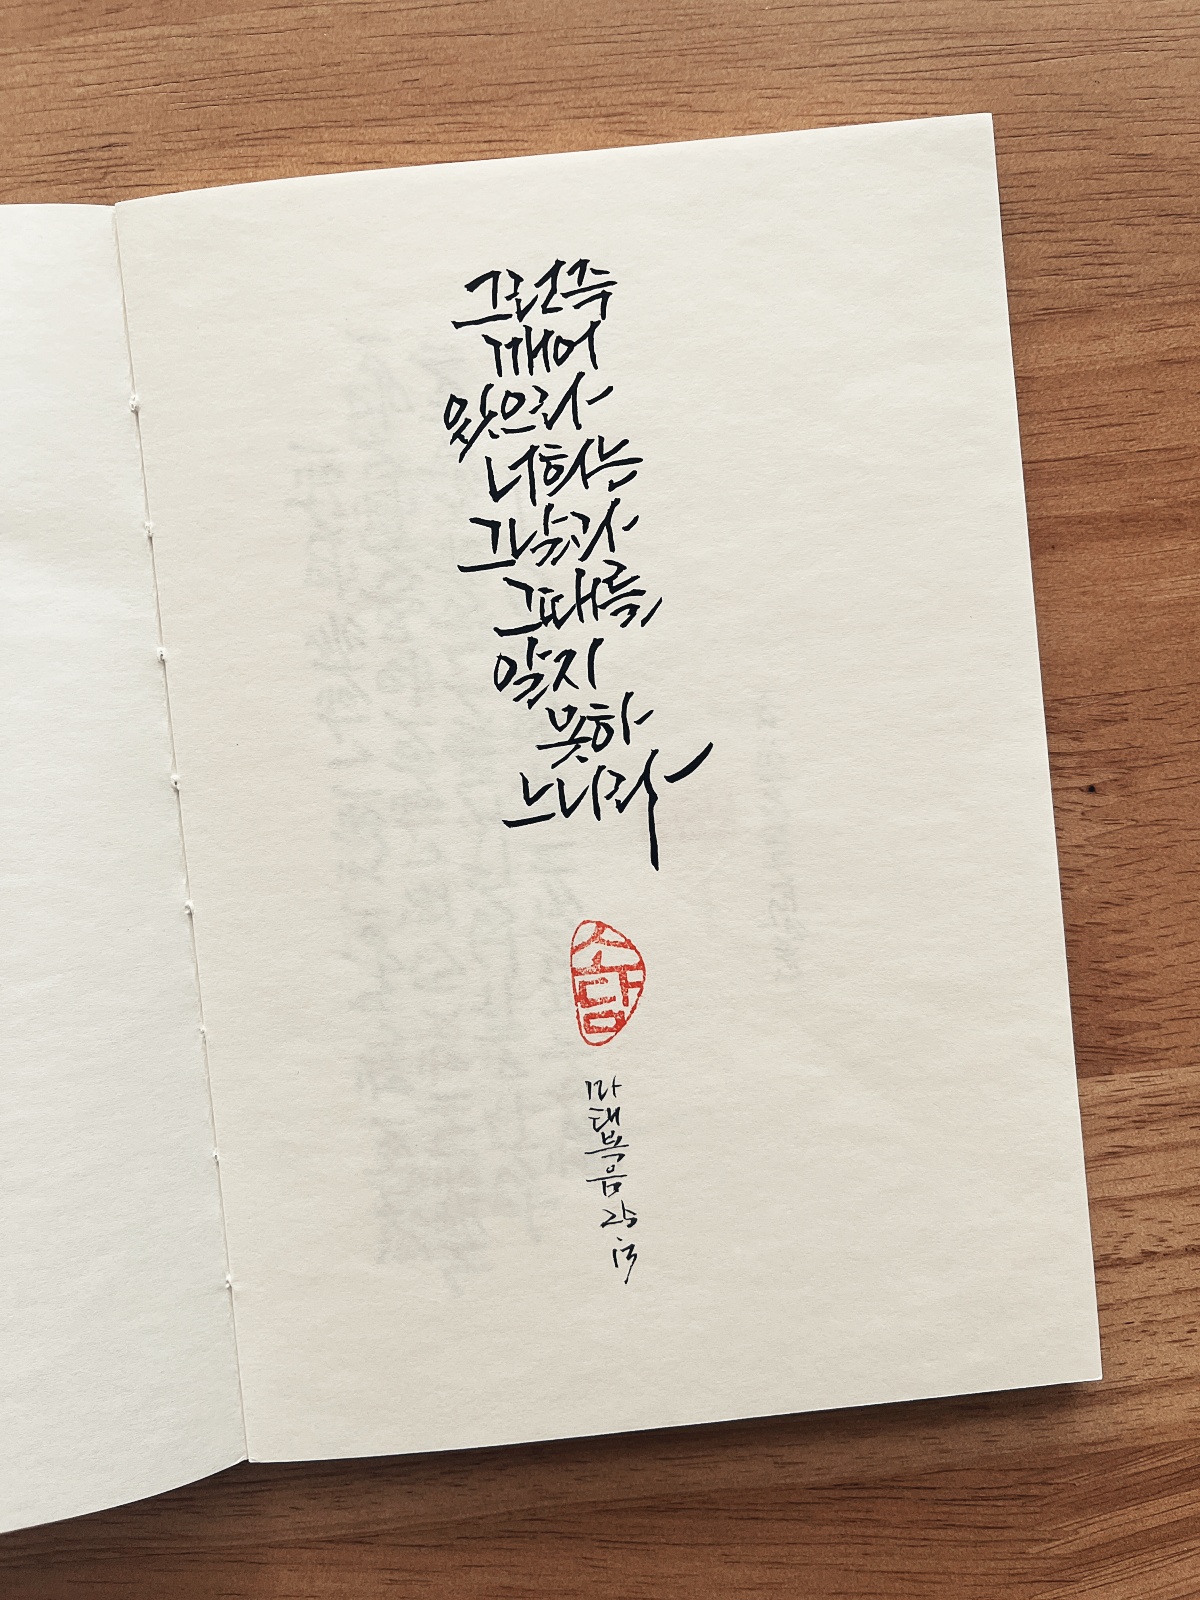 그런즉
깨어
있으라
너희는
그날과
그때를
알지
못하
느니라
소
담
마
태
복
음
25
:13